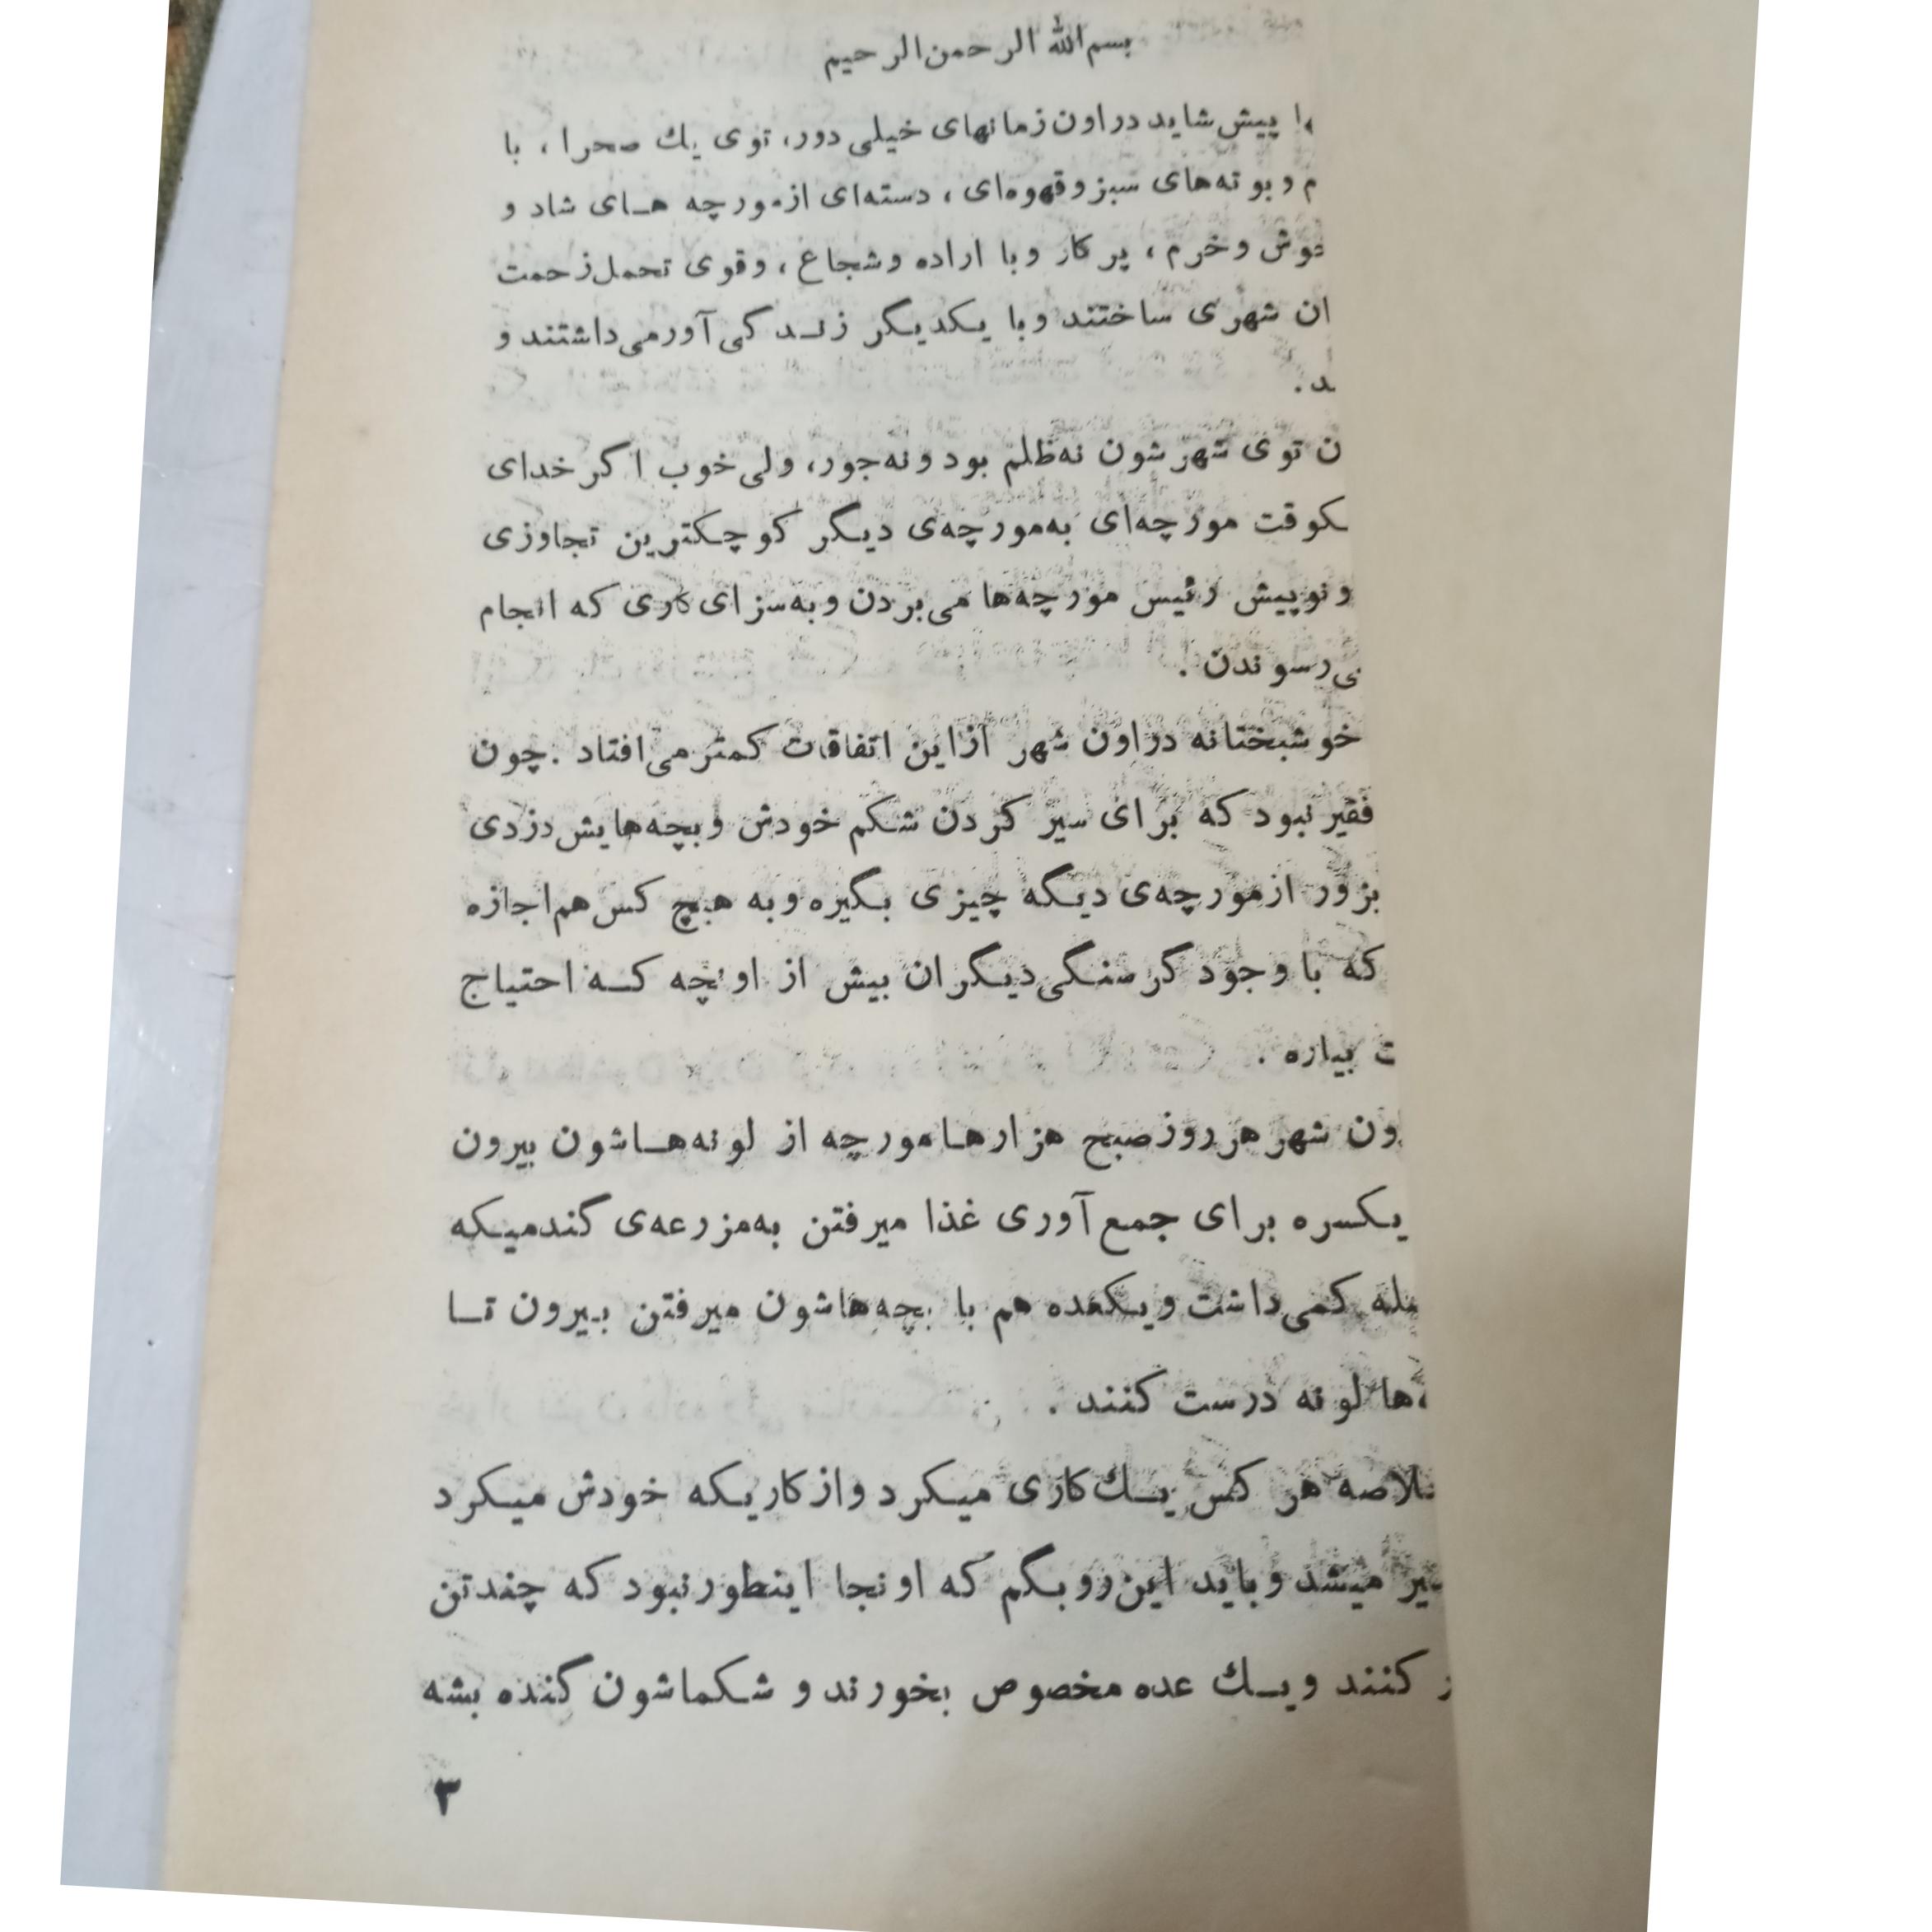 بسم‌الله الرحمن‌الرحیم
پیش شاید در اون زمانهای خیلی دور، توی یك صحرا، با
م و بوته‌های سبز و قهوه‌ای، دسته‌ای از مورچه هـای شاد و
خوش و خرم، پر کار و با اراده و شجاع، و قوی تحمل زحمت
ان شهری ساختند و با یـکدیـگر زنـدگی آور می‌داشتند و
ـد.
ن توی شهرشون نه ظلم بود و نه جور، ولی خوب اگر خدای
ـکوقت مورچه‌ای به مورچه‌ی دیـگر کوچـکترین تجاوزی
و نو پیش رئیس مورچه‌ها می‌بردن و به سزای کاری که انجام
ی‌رسوندن.
خوشبختانه در اون شهر از این اتفاقات کمتر می‌افتاد. چون
فقیر نبود که برای سیر کردن شکم خودش و بچه‌هایش دزدی
بزور از مورچه‌ی دیـگه چیزی بـگیره و به هیچ کس هم اجازه
که با وجود گرسنـگی دیـگران بیش از اونچه کـه احتیاج
ت بیاره.
ون شهر هر روز صبح هزارهـا مورچه از لونه‌هـاشون بیرون
یـکسره برای جمع آوری غذا میرفتن به مزرعه‌ی گندمیـکه
ـله کمی داشت و یـکعده هم با بچه‌هاشون میرفتن بـیرون تـا
ها لونه درست کنند.
ـلاصه هر کس یـك کاری میـکرد و از کاریـکه خودش میـکرد
ـیر میشد و باید این رو بـگم که اونجا اینطور نبود که چند تن
ر کنند و یـك عده مخصوص بخورند و شـکماشون گنده بشه
۳